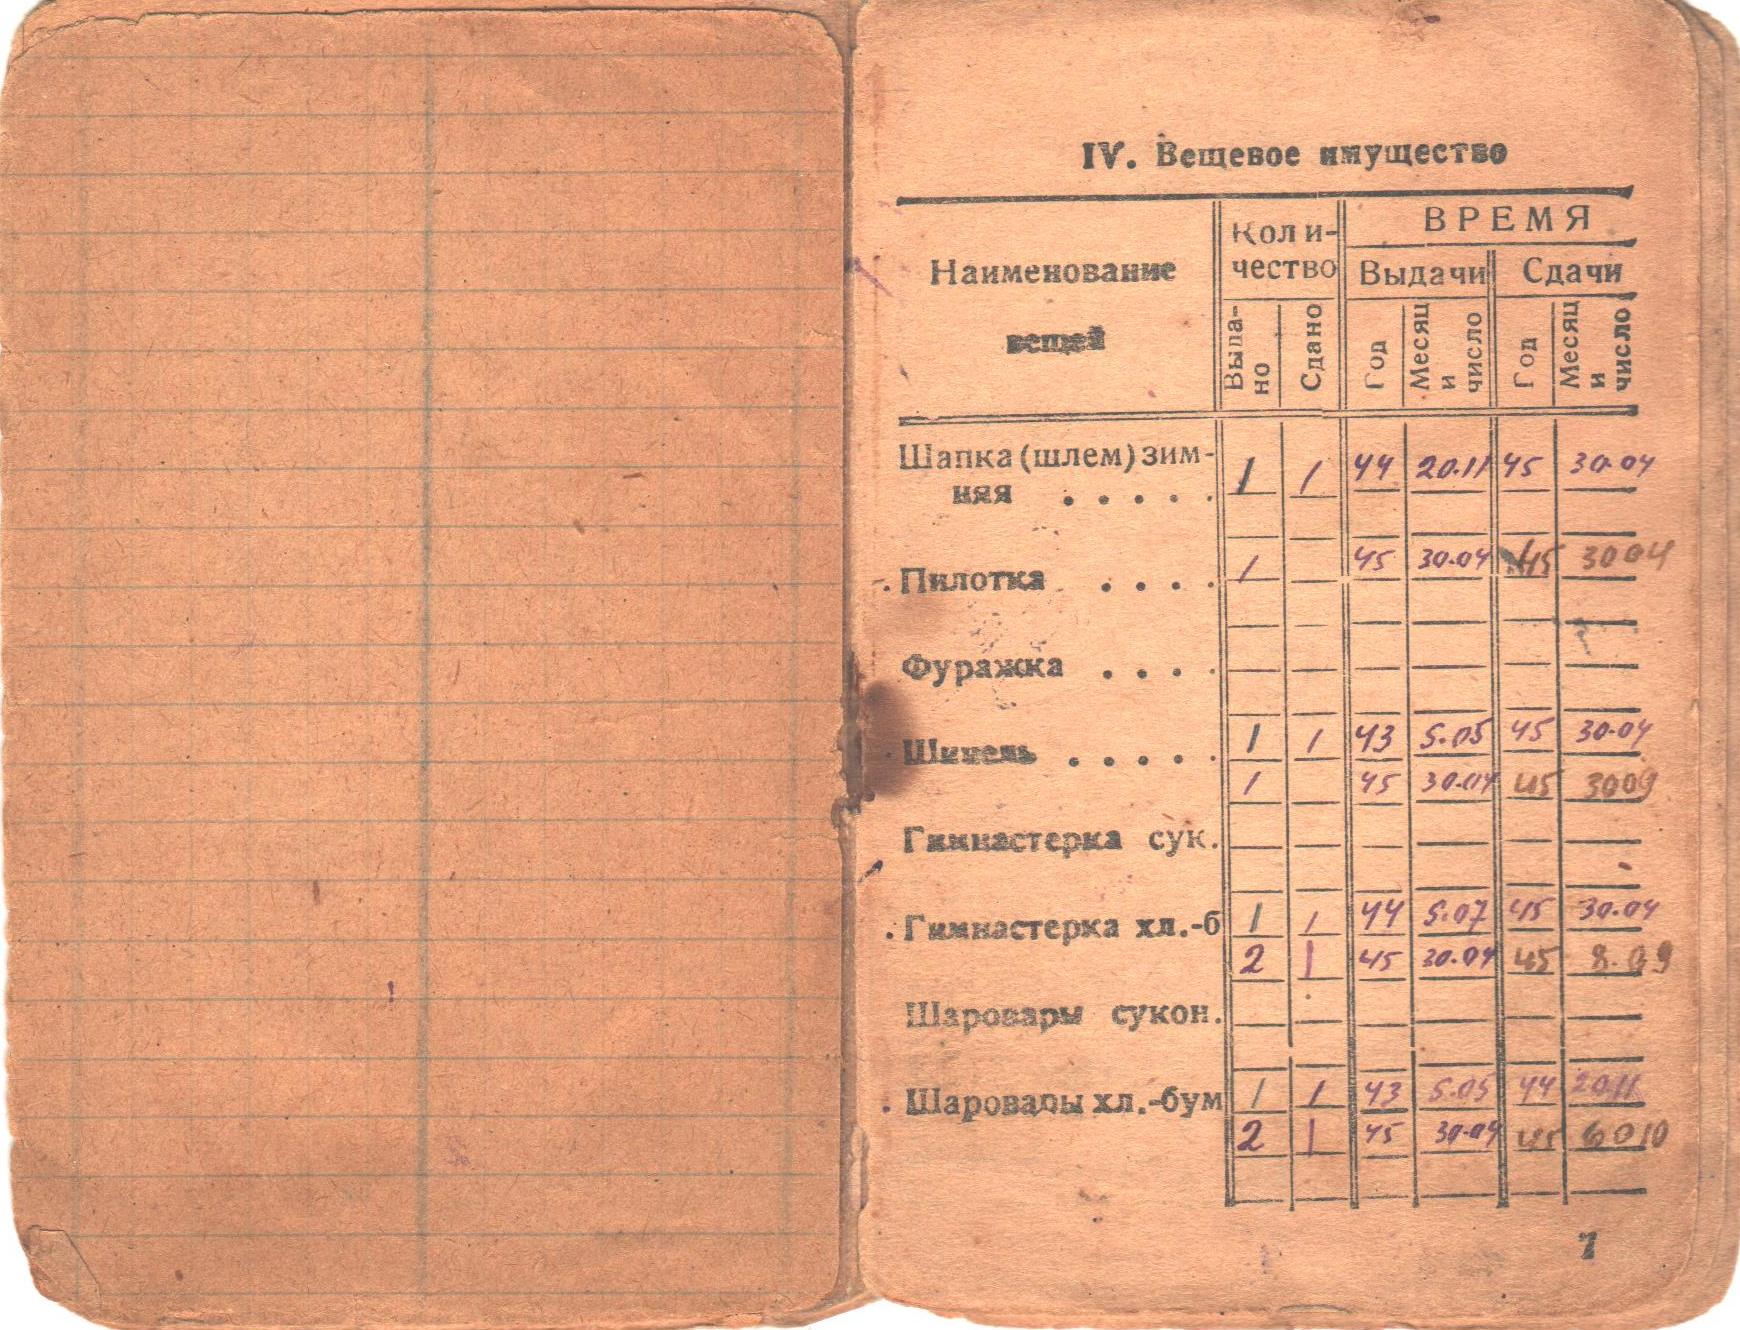 IV. Вещевое имущество
Наименование вещей
Коли-
чество
ВРЕМЯ
Выдачи
Сдачи
Выда-
но
Сдано
Год
Месяц
и
число
Год
Месяц
и
число
Шапка (шлем) зим-
няя . . . . . 1 1 44 20.11 45 30.04
Пилотка . . . . 1 45 30.04 45 3004
Фуражка . . . .
Шинель . . . . . 1 1 43 5.05 45 30.04
1 45 30.04 45 3009
Гимнастерка сук.
Гимнастерка хл.-б 1 1 44 5.07 45 30.04
2 1 45 30.04 45 8.09
Шаровары сукон.
Шаровары хл.-бум 1 1 43 5.05 44 2011
2 1 45 30.04 45 6010
7